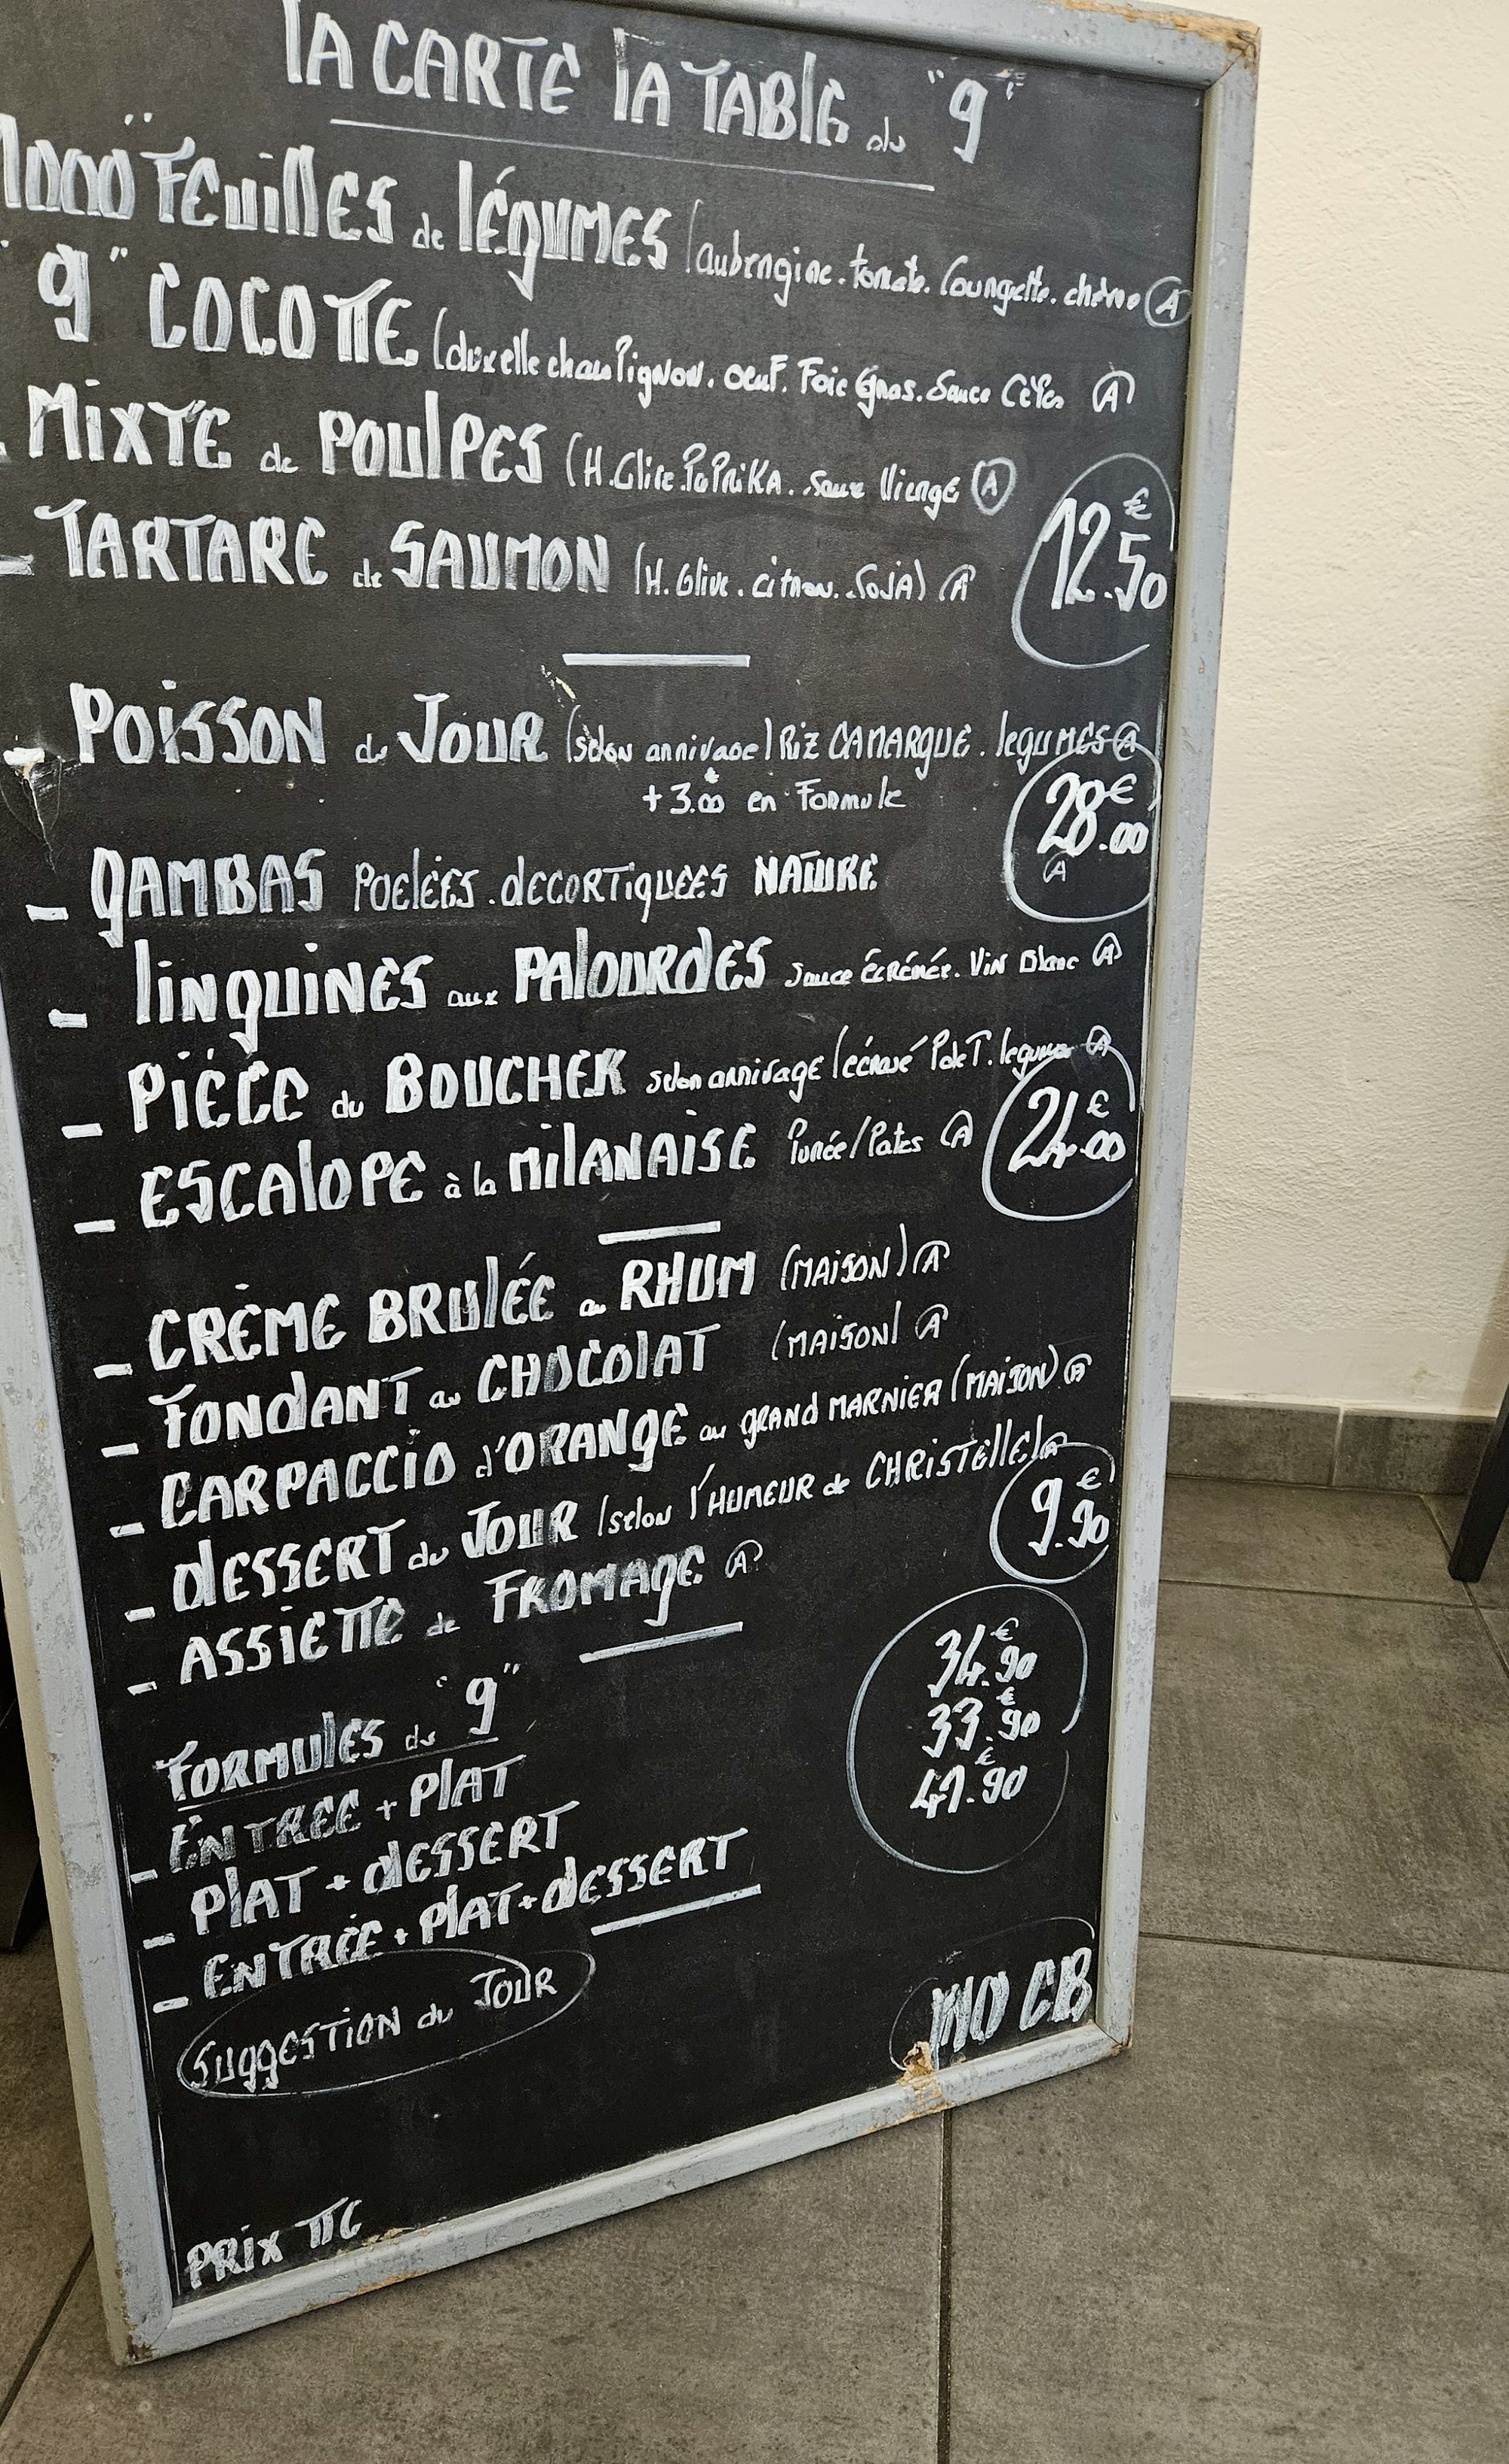 LA CARTE LA TABLE du "9"
1000 "FEUILLES de LÉGUMES (aubergine. tomate. Courgette. chèvre (A)
"9" COCOTTE (duxelle champignon. oeuf. Foie Gras. Sauce Cèpes (A)
- MIXTE de POULPES (H.Olive.PAPRIKA. Sauce Vierge (A)
- TARTARE de SAUMON (H.Olive. citron. SOJA) (A)
12.50€
- POISSON du JOUR (selon arrivage) RIZ CAMARGUE. légumes (A)
+ 3.00€ en Formule
28.00€
(A)
- GAMBAS POELÉES. DECORTIQUÉES NATURE
- LINGUINES aux PALOURDES Sauce ÉCRÉMÉE. Vin Blanc (A)
- PIÈCE du BOUCHER selon arrivage (écrasé P de T. legumes (A)
- ESCALOPE à la MILANAISE Purée/Pates (A)
24.00€
- CRÈME BRULÉE au RHUM (MAISON) (A)
- FONDANT au CHOCOLAT (MAISON) (A)
- CARPACCIO d'ORANGE au GRAND MARNIER (MAISON) (A)
- DESSERT du JOUR (selon l'HUMEUR de CHRISTELLE) (A)
- ASSIETTE de FROMAGE (A)
9.90€
FORMULES du "9"
- ENTRÉE + PLAT 34.90€
- PLAT + DESSERT 33.90€
- ENTRÉE + PLAT + DESSERT 41.90€
SUGGESTION du JOUR
NO CB
PRIX TTC